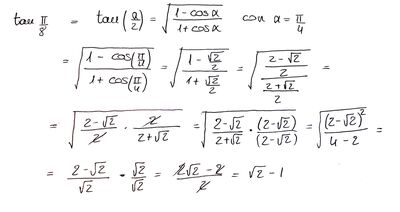 tan π/8 = tan(α/2) = √((1 - cosα)/(1 + cosα)) con α = π/4
= √((1 - cos(π/4))/(1 + cos(π/4))) = √((1 - √2/2)/(1 + √2/2)) = √(((2 - √2)/2)/((2 + √2)/2))
= √((2 - √2)/2 · 2/(2 + √2)) = √((2 - √2)/(2 + √2) · (2 - √2)/(2 - √2)) = √((2 - √2)²/(4 - 2)) =
= (2 - √2)/√2 · √2/√2 = (2√2 - 2)/2 = √2 - 1